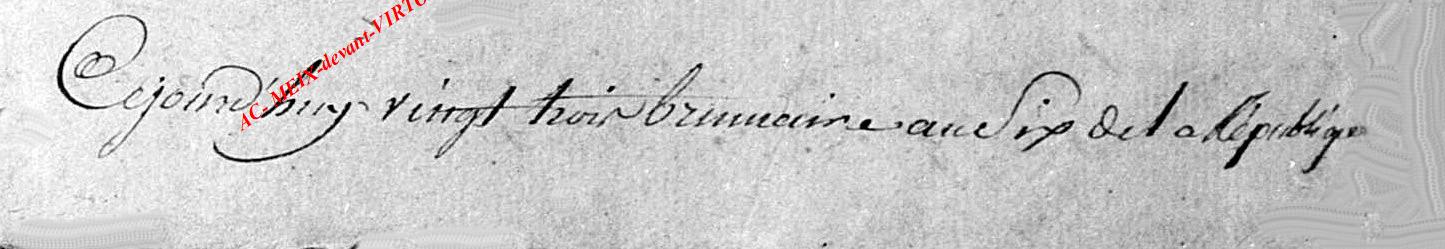 AC-MEIX-devant-VIRTO
Cejourd'huy vingt trois brumaire an Six de la République